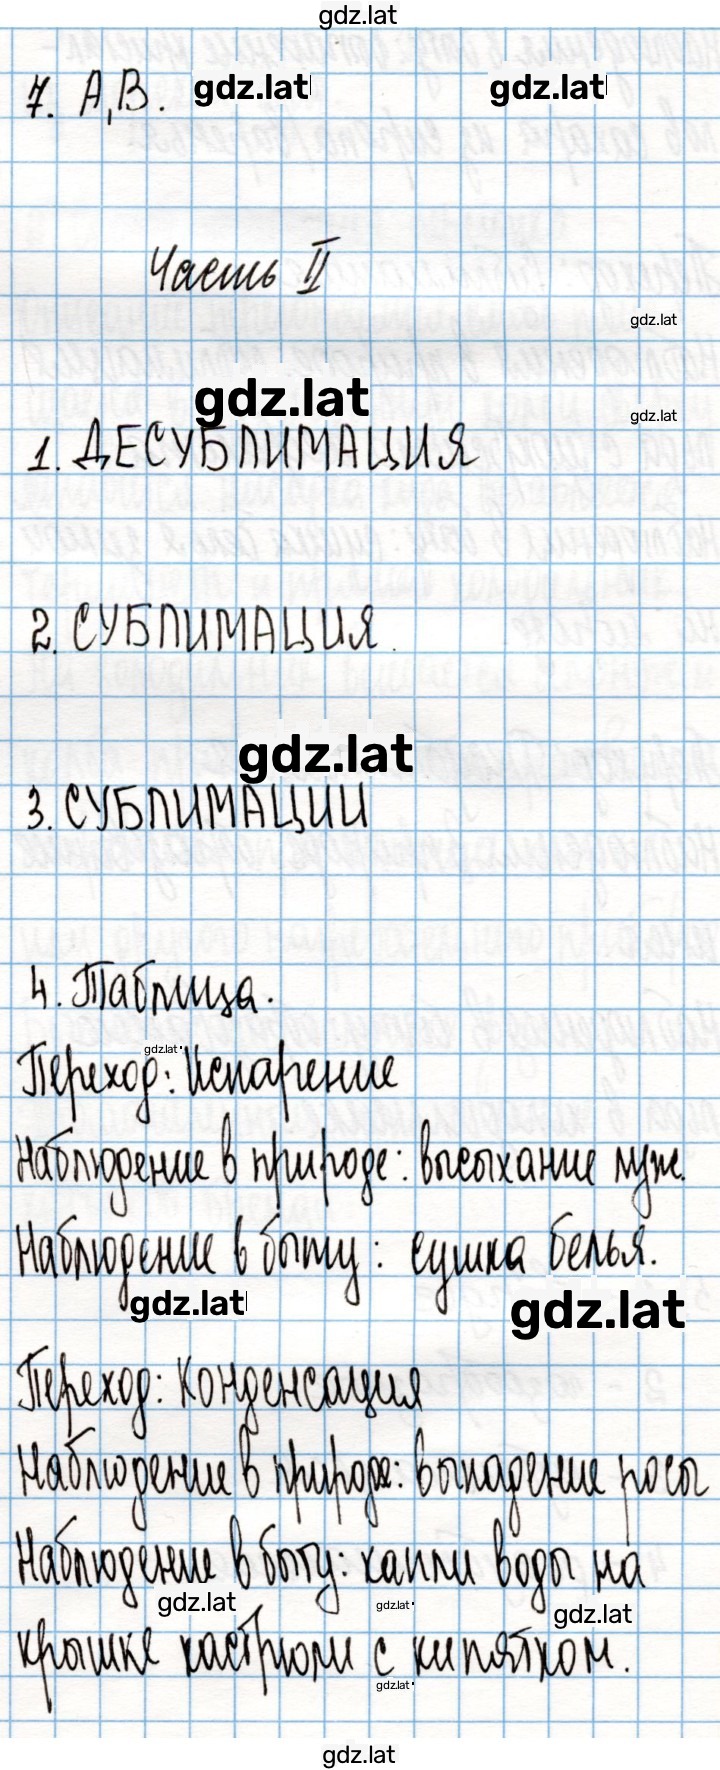 gdz.lat
7. А,В.
gdz.lat gdz.lat
Часть II
gdz.lat
gdz.lat
gdz.lat
1. ДЕСУБЛИМАЦИЯ
2. СУБЛИМАЦИЯ.
gdz.lat
3. СУБЛИМАЦИИ
4. Таблица.
gdz.lat
Переход: Испарение
Наблюдение в природе: высыхание луж.
Наблюдение в быту: сушка белья.
gdz.lat gdz.lat
Переход: Конденсация
Наблюдение в природе: выпадение росы
Наблюдение в быту: капли воды на
gdz.lat gdz.lat gdz.lat
крышке кастрюли с кипятком.
gdz.lat
gdz.lat